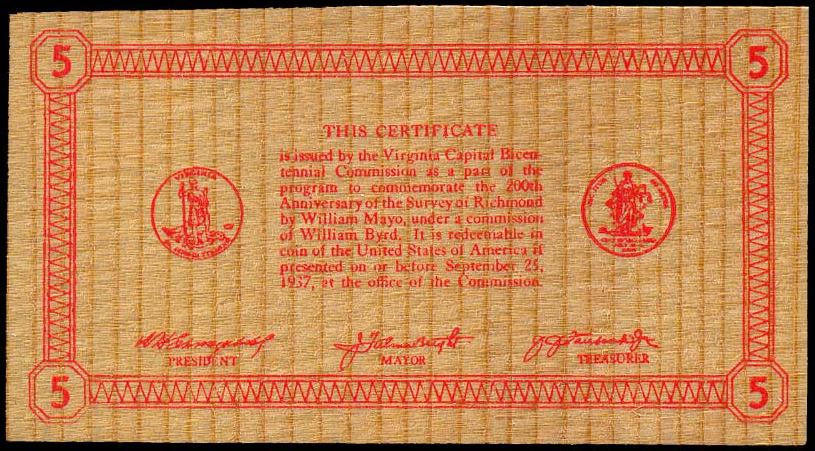 5 5
THIS CERTIFICATE
is issued by the Virginia Capital Bicen-
tennial Commission as a part of the
program to commemorate the 200th
Anniversary of the Survey of Richmond
by William Mayo, under a commission
of William Byrd. It is redeemable in
coin of the United States of America if
presented on or before September 25,
1937, at the office of the Commission.
VIRGINIA
PRESIDENT MAYOR TREASURER
5 5